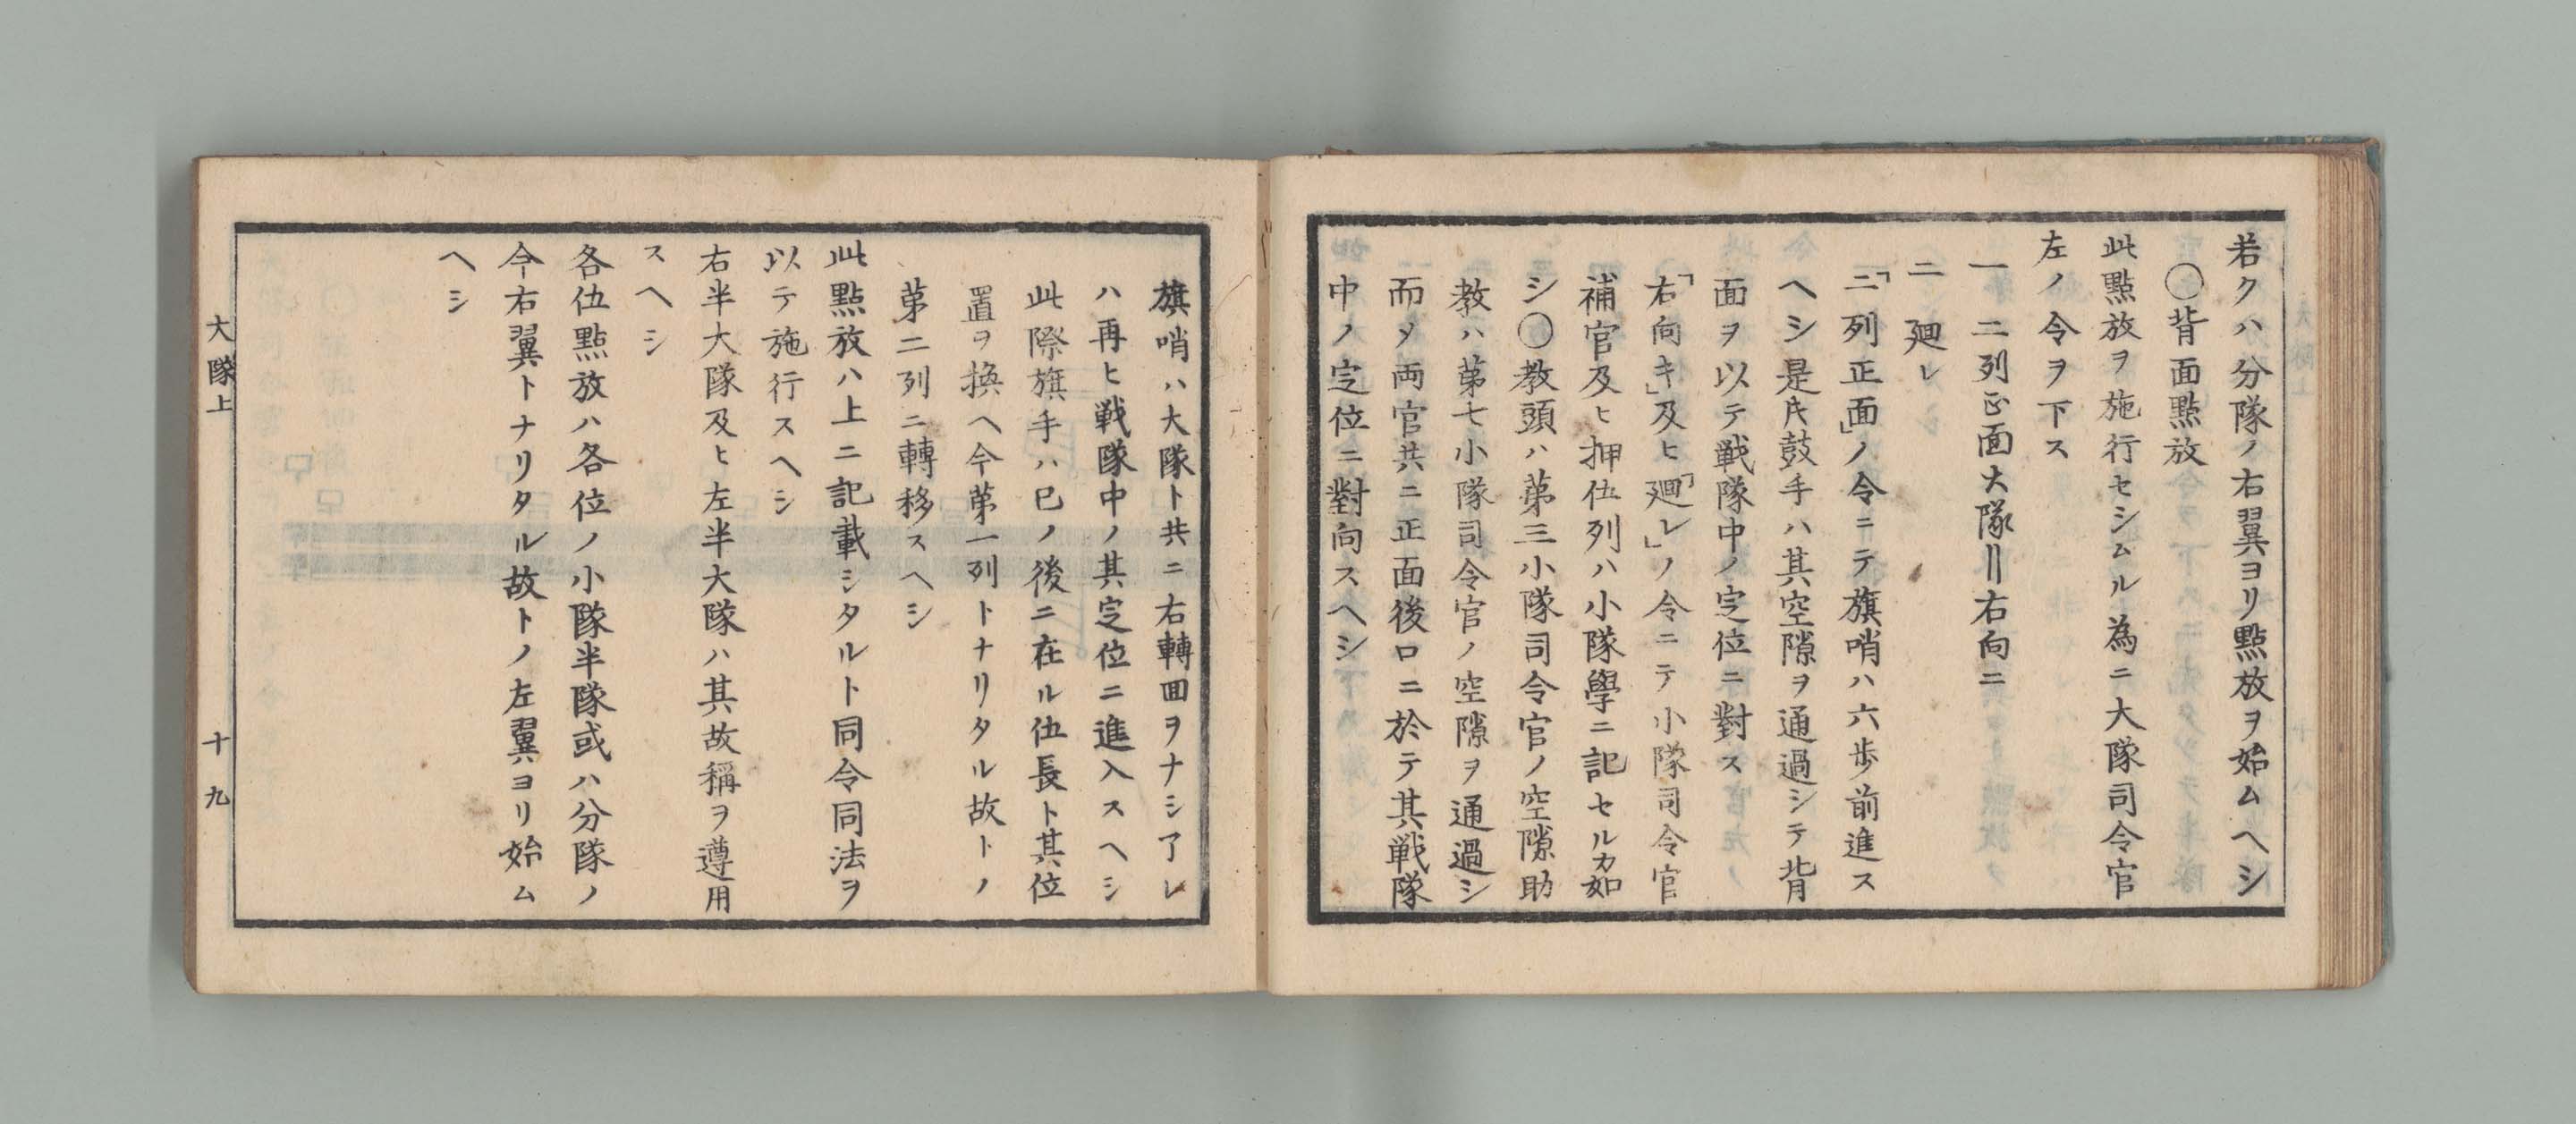 若クハ分隊ノ右翼ヨリ點放ヲ始ムヘシ
〇背面點放
此點放ヲ施行セシムル為ニ大隊司令官
左ノ令ヲ下ス
一 二列正面大隊‖右向ニ
二 廻レ
「二列正面」ノ令ニテ旗哨ハ六歩前進ス
ヘシ是時鼓手ハ其空隙ヲ通過シテ背
面ヲ以テ戦隊中ノ定位ニ對ス
「右向キ」及ヒ「廻レ」ノ令ニテ小隊司令官
補官及ヒ押伍列ハ小隊學ニ記セルカ如
シ〇教頭ハ第三小隊司令官ノ空隙助
教ハ第七小隊司令官ノ空隙ヲ通過シ
而メ両官共ニ正面後ロニ於テ其戦隊
中ノ定位ニ對向スヘシ
旗哨ハ大隊ト共ニ右轉囬ヲナシ了レ
ハ再ヒ戦隊中ノ其定位ニ進入スヘシ
此際旗手ハ巳ノ後ニ在ル伍長ト其位
置ヲ換ヘ今第一列トナリタル故トノ
第二列ニ轉移スヘシ
此點放ハ上ニ記載シタルト同令同法ヲ
以テ施行スヘシ
右半大隊及ヒ左半大隊ハ其故稱ヲ遵用
スヘシ
各伍點放ハ各位ノ小隊半隊或ハ分隊ノ
今右翼トナリタル故トノ左翼ヨリ始ム
ヘシ
大隊上 十九